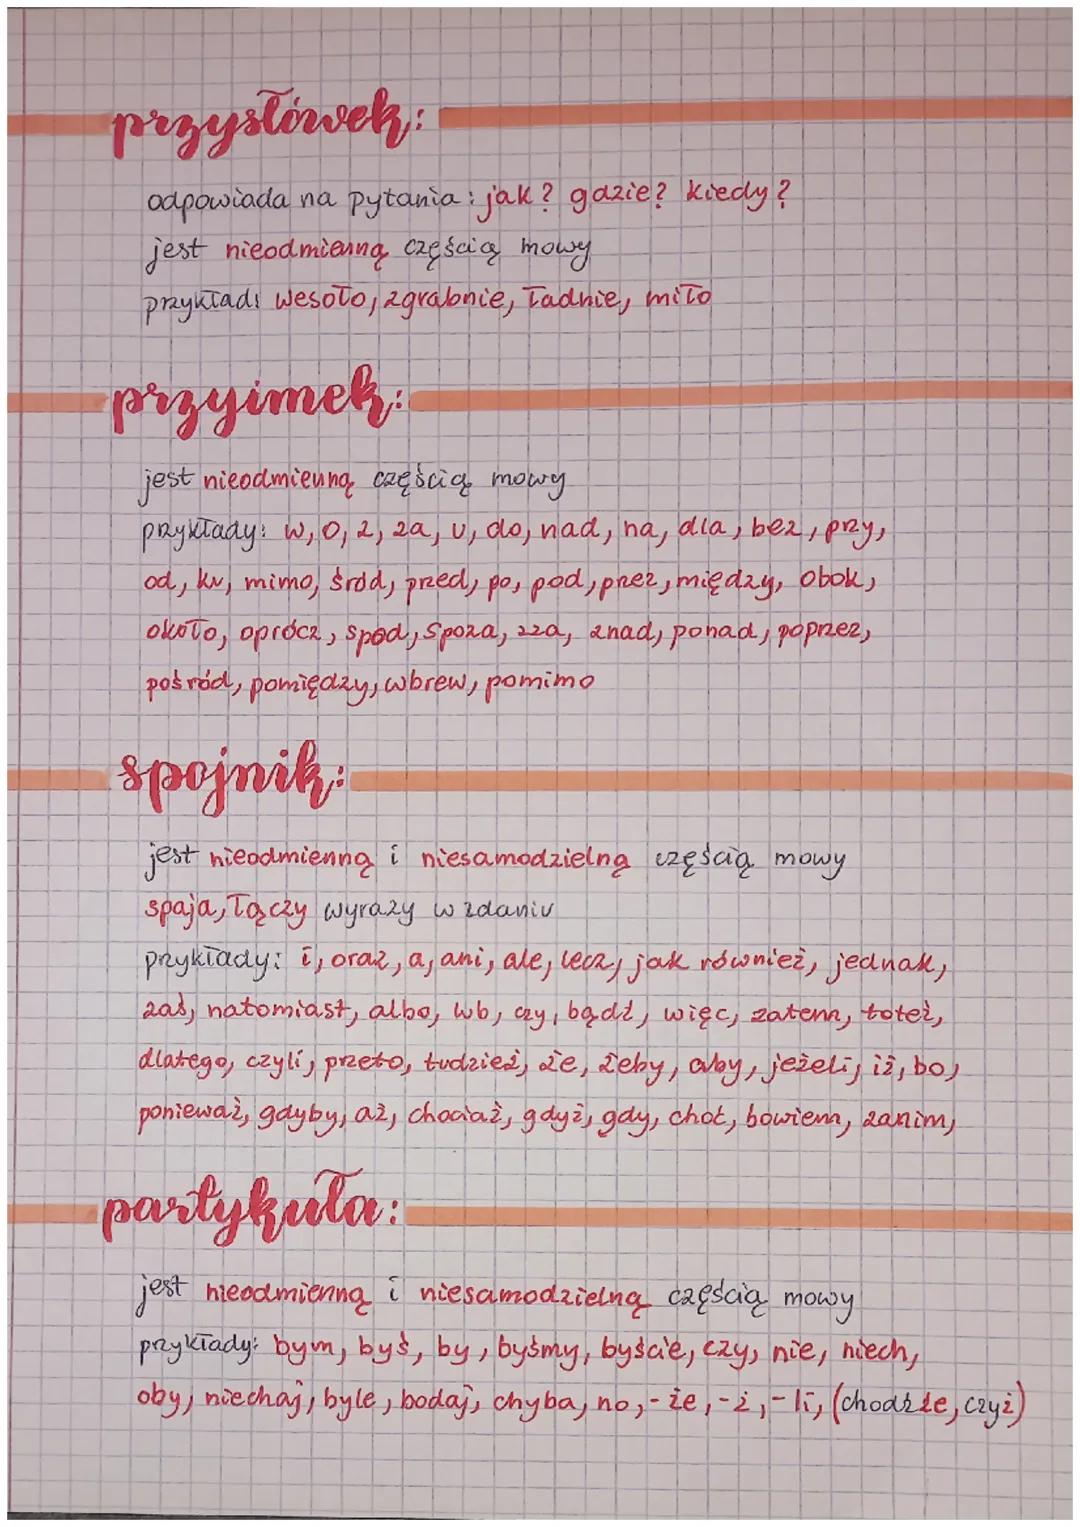 przysłówek:
odpowiada na pytania: jak? gdzie? kiedy?
jest nieodmienną częścią mowy
przykład: wesoło, zgrabnie, ładnie, miło
przyimek:
jest nieodmienną częścią mowy
przykłady: w, o, z, za, u, do, nad, na, dla, bez, przy,
od, ku, mimo, śród, przed, po, pod, przez, między, obok,
około, oprócz, spod, spoza, zza, znad, ponad, poprzez,
pośród, pomiędzy, wbrew, pomimo
spojnik:
jest nieodmienną i niesamodzielną częścią mowy
spaja, łączy wyrazy w zdaniu
przykłady: i, oraz, a, ani, ale, lecz, jak również, jednak,
zaś, natomiast, albo, lub, czy, bądź, więc, zatem, toteż,
dlatego, czyli, przeto, tudzież, że, żeby, aby, jeżeli, iż, bo,
ponieważ, gdyby, aż, chociaż, gdyż, gdy, choć, bowiem, zanim,
partykuła:
jest nieodmienną i niesamodzielną częścią mowy
przykłady: bym, byś, by, byśmy, byście, czy, nie, niech,
oby, niechaj, byle, bodaj, chyba, no, -że, -ż, -li, (chodźże, czyż)